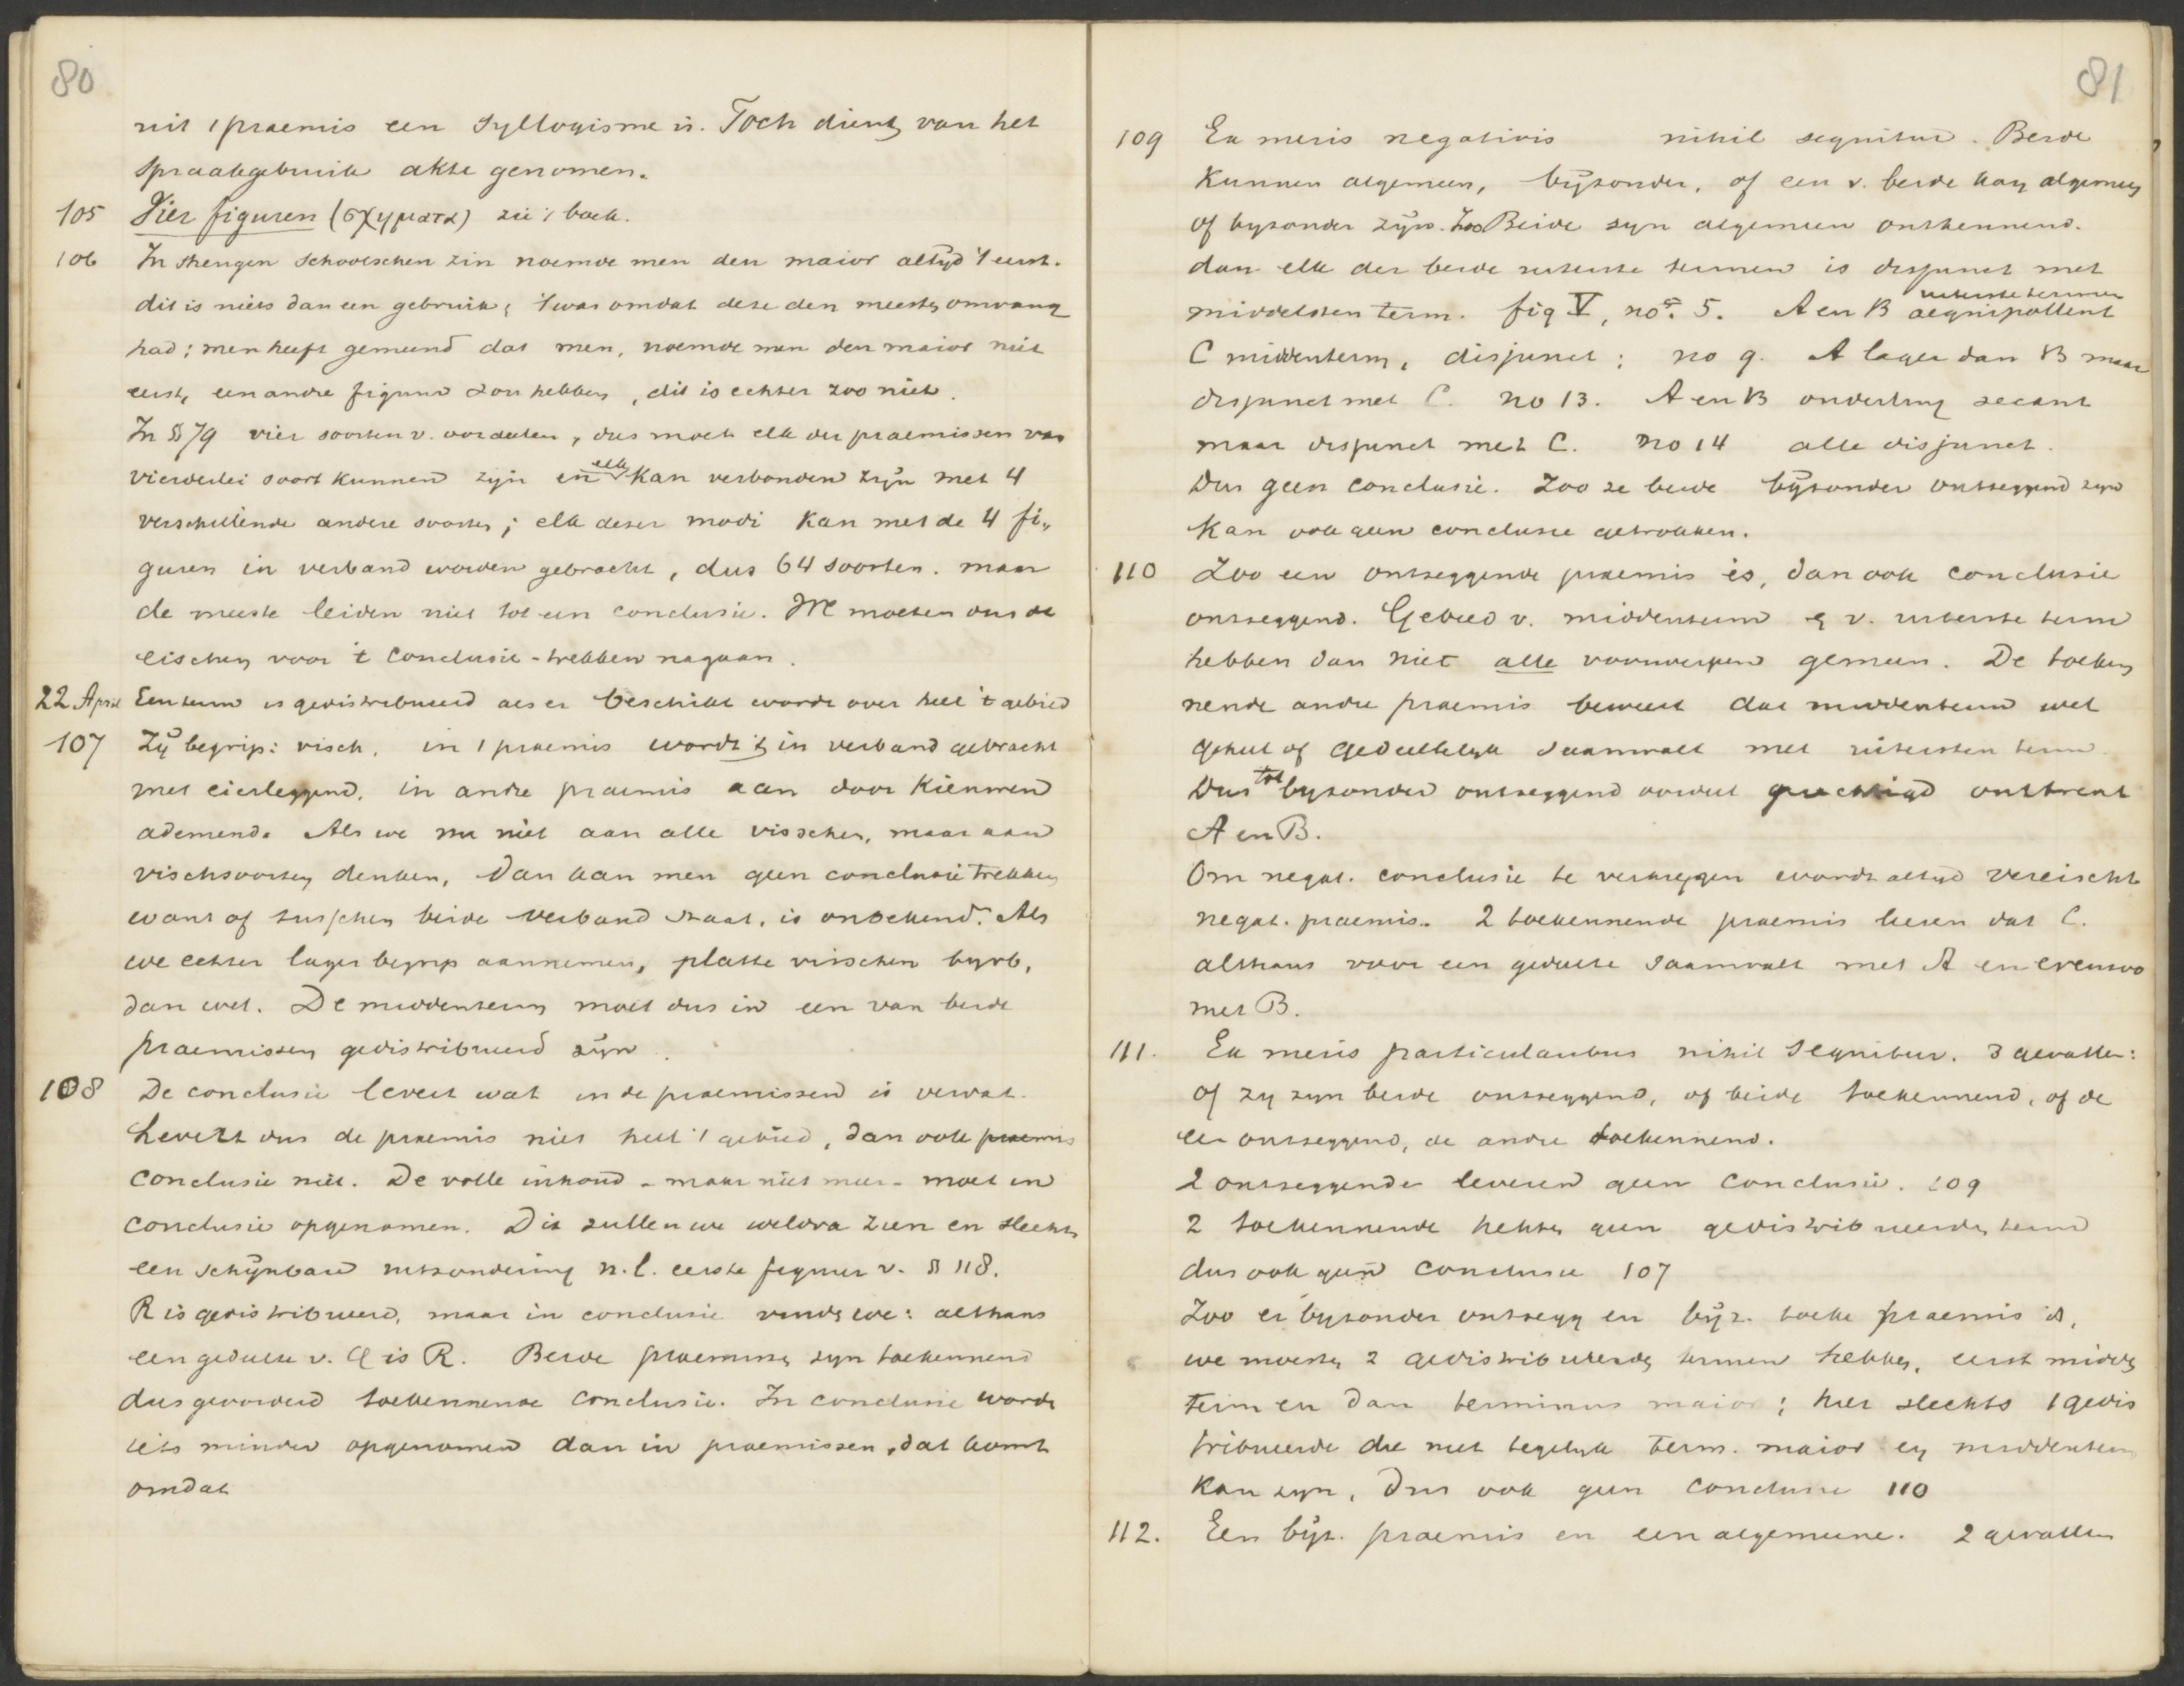 80
uit 1 praemis een syllogisme is. Toch dient van het
spraakgebruik akte genomen.
105 Vier figuren (σχηματα) zie 't boek.
106 In strengen schoolschen zin noemde men den maior altijd 't eerst.
dit is niets dan een gebruik; 't was omdat deze den meesten omvang
had; men heeft gemeend dat men, noemde men den maior niet
eerst, een andre figuur zou hebben, dit is echter zoo niet.
In § 79 vier soorten v. oordeelen, dus moet elk der praemissen van
vierderlei soort kunnen zijn en elk kan verbonden zijn met 4
verschillende andere soorten; elk dezer modi kan met de 4 fi„
guren in verband worden gebracht, dus 64 soorten. maar
de meeste leiden niet tot een conclusie. We moeten dus de
eischen voor 't conclusie-trekken nagaan.
22 April Een term is gedistribueerd als er beschikt wordt over heel 't gebied
107 Zij begrip: visch. in 1 praemis wordt 't in verband gebracht
met eierleggend, in andre praemis aan door kieuwen
ademend. Als we nu niet aan alle visschen, maar aan
vischsoorten denken, dan kan men geen conclusie trekken
want of tusschen beide verband staat, is onbekend. Als
we echter lager begrip aannemen, platte visschen byvb,
dan wel. De middenterm moet dus in een van beide
praemissen gedistribueerd zijn.
108 De conclusie levert wat in de praemissen is vervat.
Levert dus de praemis niet heel 't gebied, dan ook praemis
conclusie niet. De volle inhoud - maar niet meer - moet in
conclusie opgenomen. Dit zullen we weldra zien en slechts
een schijnbare uitzondering n.l. eerste figuur v. § 118.
R is gedistribueerd, maar in conclusie vinden we: althans
een gedeelte v. Q is R. Beide praemissen zyn toekennend
dus gevorderd toekennende conclusie. In conclusie wordt
iets minder opgenomen dan in praemissen, dat komt
omdat
81
109 Ex meris negativis nihil sequitur. Beide
kunnen algemeen, bijzonder, of een v. beide kan algemeen
of byzonder zijn. Zoo Beide zyn algemeen ontkennend.
dan elk der beide uiterste termen is disjunct met
middelsten term. fig V, no. 5. A en B uiterste termen aequipollent
C middenterm, disjunct; no 9. A lager dan B maar
disjunct met C. no 13. A en B onderling secant
maar disjunct met C. no 14 alle disjunct.
Dus geen conclusie. Zoo ze beide bijzonder ontzeggend zyn
kan ook geen conclusie getrokken.
110 Zoo een ontzeggende praemis is, dan ook conclusie
ontzeggend. Gebied v. middenterm & v. uiterste term
hebben dan niet alle voorwerpen gemeen. De toeken
nende andre praemis beweert dat middenterm wel
geheel of gedeeltelyk saamvalt met uitersten term.
Dus tot byzonder ontzeggend oordeel gerechtigd omtrent
A en B.
Om negat. conclusie te verkrygen wordt altyd vereischt
negat. praemis. 2 toekennende praemis leeren dat C.
althans voor een gedeelte saamvalt met A en evenzoo
met B.
111. Ex meris particularibus nihil sequitur. 3 gevallen:
of zy zyn beide ontzeggend, of beide toekennend, of de
een ontzeggend, de andre toekennend.
2 ontzeggende leveren geen conclusie. 109
2 toekennende hebben geen gedistribueerden term
dus ook geen conclusie 107
Zoo er byzonder ontzegg en bijz. toeke praemis is,
we moeten 2 gedistribueerde termen hebben, eerst midden
term en dan terminus maior; hier slechts 1 gedis
tribueerde die niet tegelyk term. maior en middenterm
kan zyn, Dus ook geen conclusie 110
112. Een bijz. praemis en een algemeene. 2 gevallen